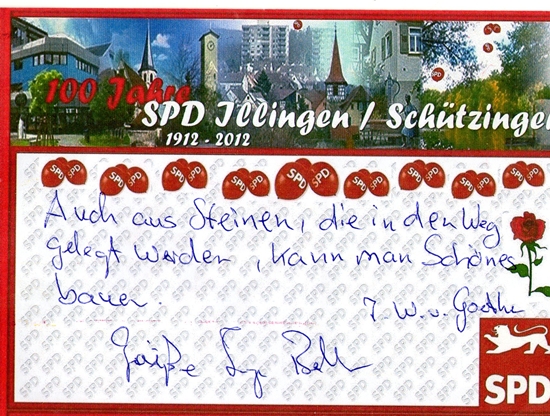 100 Jahre
SPD Illingen / Schützingen
1912 - 2012
SPD SPD SPD SPD SPD SPD SPD SPD
Auch aus Steinen, die in den Weg
gelegt werden, kann man Schönes
bauen.
J. W. v. Goethe
Grüße
SPD